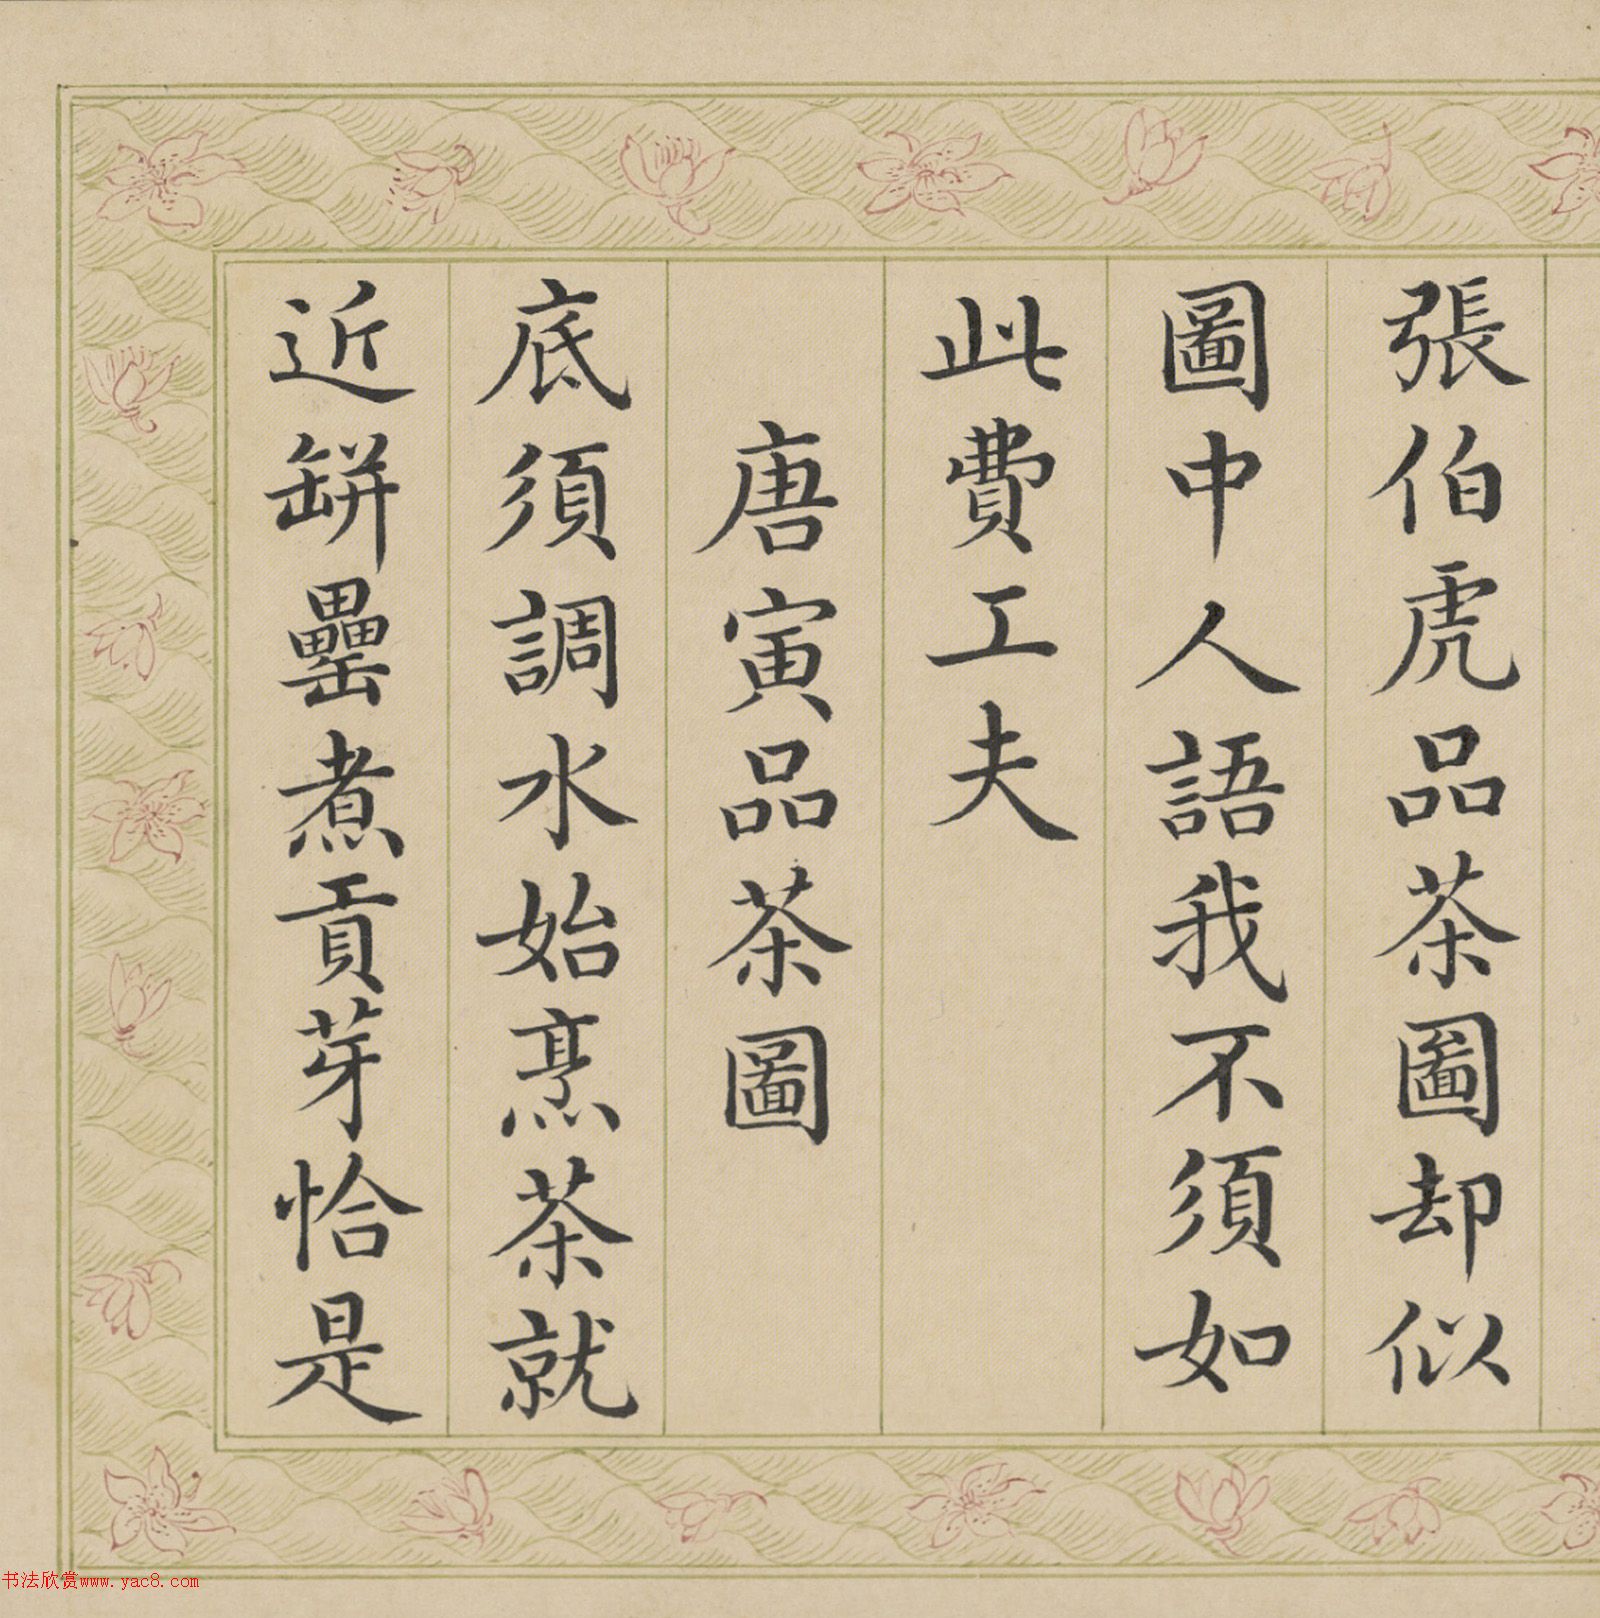 張伯虎品茶圖却似
圖中人語我不須如
此費工夫
唐寅品茶圖
底須調水始烹茶就
近缾罍煮貢芽恰是
书法欣赏www.yac8.com